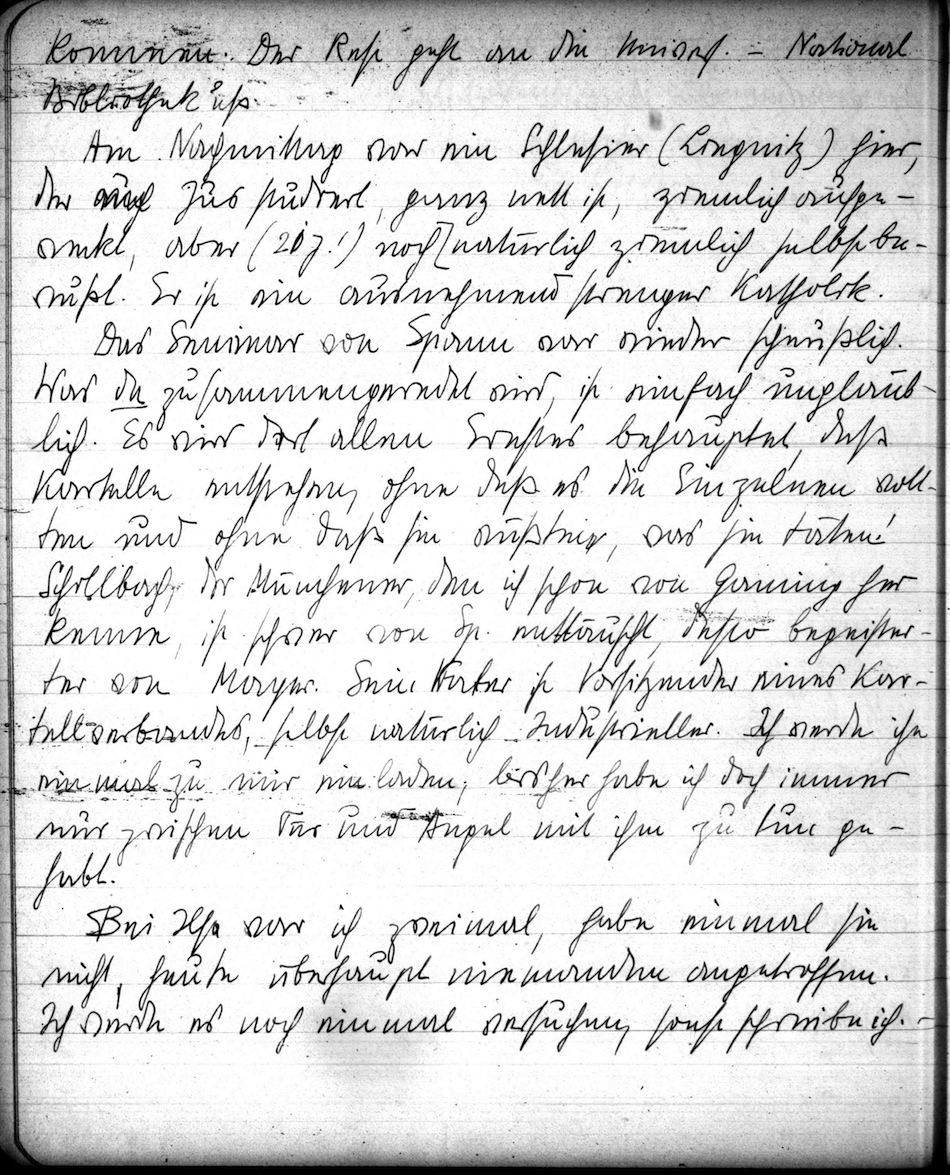 kommen. Der Rest geht an die Univers. = National
Bibliothek usf.
Am Nachmittag war ein Schlesier (Liegnitz) hier,
der auch Jus studiert, ganz nett ist, ziemlich aufge-
weckt, aber (20 J.!) noch natürlich ziemlich selbstbe-
wußt. Er ist ein ausnehmend strenger Katholik.
Das Seminar von Spann war wieder scheußlich.
Was da zusammengeredet wird, ist einfach unglaub-
lich. Es wird dort allen Ernstes behauptet, daß
Kartelle entstehen, ohne daß es die Einzelnen woll-
ten und ohne daß sie wüßten, was sie täten!
der Münchener, den ich schon von Gaming her
kenne, ist schwer von Sp. enttäuscht, desto begeister-
ter von Mayer. Sein Vater ist Vorsitzender eines Kar-
tellverbandes, selbst natürlich Industrieller. Ich werde ihn
einmal zu mir einladen; bisher habe ich doch immer
nur zwischen Tür und Angel mit ihm zu tun ge-
habt.
Bei Ilse war ich zweimal, habe einmal sie
nicht, heute überhaupt niemanden angetroffen.
Ich werde es noch einmal versuchen, sonst schreibe ich. -